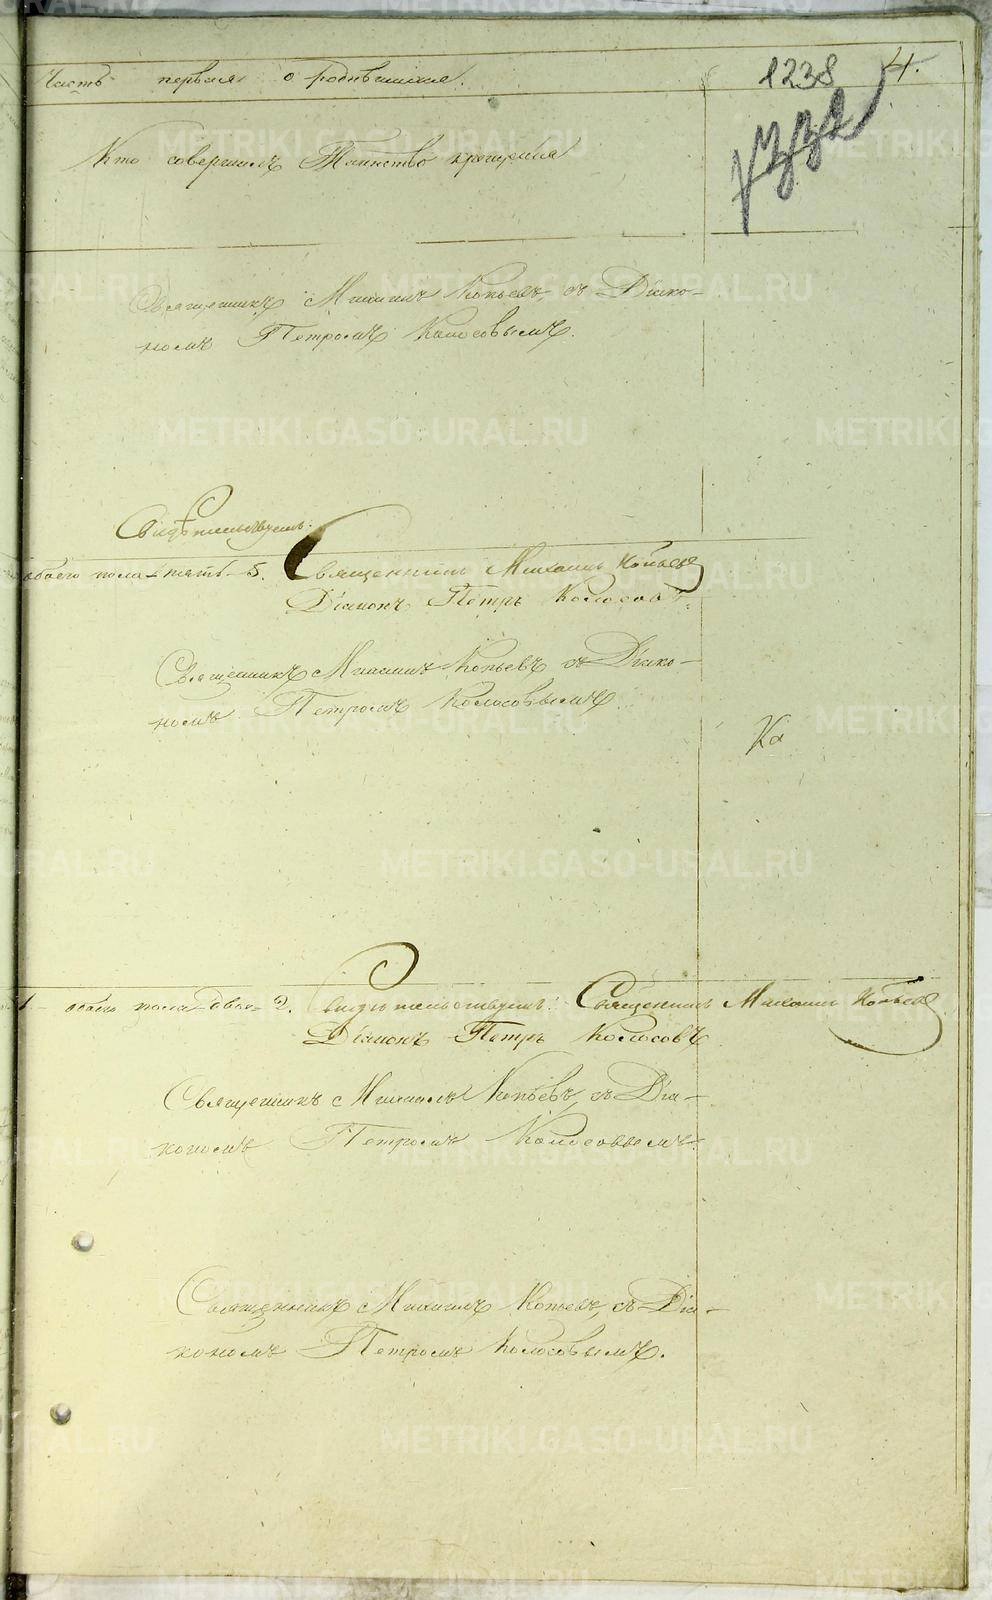 Часть первая о родившихся.
1238
4.
Кто совершилъ Таинство крещенія
Священникъ Михаилъ Копьевъ, съ Діако-
номъ Петромъ Колосовымъ.
Свидѣтельствуемъ:
обоего пола пять 5. Священникъ Михаилъ Копьевъ
Діаконъ Петръ Колосовъ.
Священникъ Михаилъ Копьевъ съ Діако-
номъ Петромъ Колосовымъ.
Ка
1 обоего пола два 2. Свидѣтельствуемъ: Священникъ Михаилъ Копьевъ
Діаконъ Петръ Колосовъ.
Священникъ Михаилъ Копьевъ, съ Діа-
кономъ Петромъ Колосовымъ.
Священникъ Михаилъ Копьевъ, съ Діа-
кономъ Петромъ Колосовымъ.
METRIKI.GASO-URAL.RU